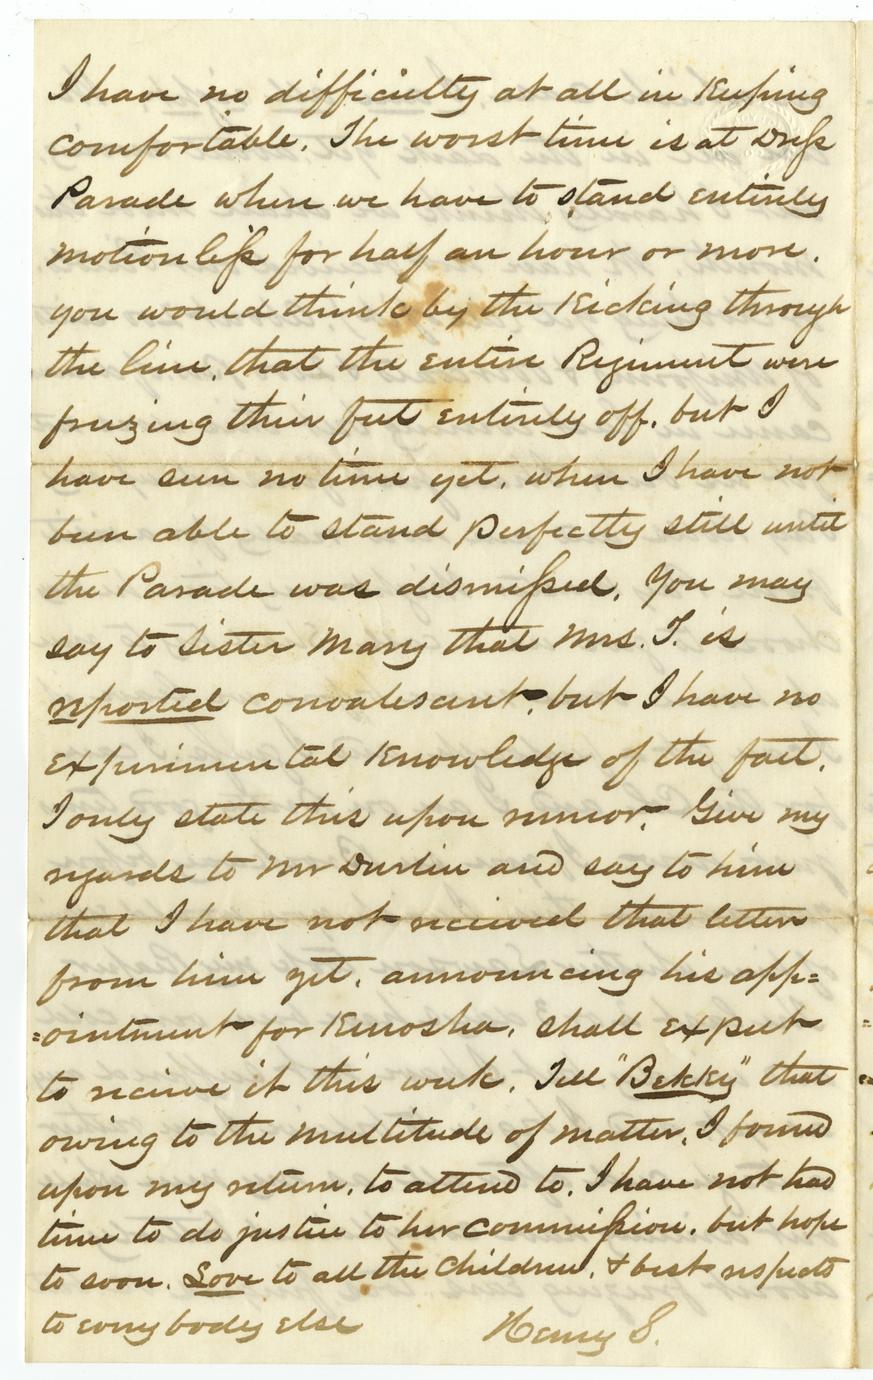 I have no difficulty at all in Keeping
comfortable. The worst time is at Dress
Parade when we have to stand entirely
motionless for half an hour or more.
you would think by the Kicking through
the line, that the entire Regiment were
freezing their feet entirely off, but I
have seen no time yet, when I have not
been able to stand perfectly still until
the Parade was dismissed. You may
say to Sister Mary that Mrs. T. is
reported convalescent, but I have no
experimental Knowledge of the fact.
I only state this upon rumor. Give my
regards to Mr Durlin and say to him
that I have not received that letter
from him yet, announcing his app=
=ointment for Kenosha, shall expect
to recieve it this week. Tell "Bekky" that
owing to the multitude of matter, I found
upon my return, to attend to, I have not had
time to do justice to her commission, but hope
to soon. Love to all the Children, & best respects
to every body else
Henry S.